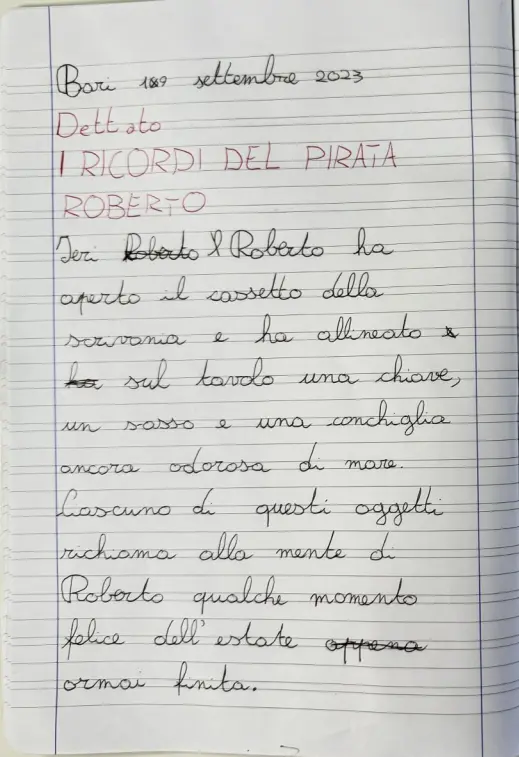 Bari 19 settembre 2023
Dettato
I RICORDI DEL PIRATA
ROBERTO
Ieri Roberto ha
aperto il cassetto della
scrivania e ha allineato
sul tavolo una chiave,
un sasso e una conchiglia
ancora odorosa di mare.
Ciascuno di questi oggetti
richiama alla mente di
Roberto qualche momento
felice dell'estate
ormai finita.